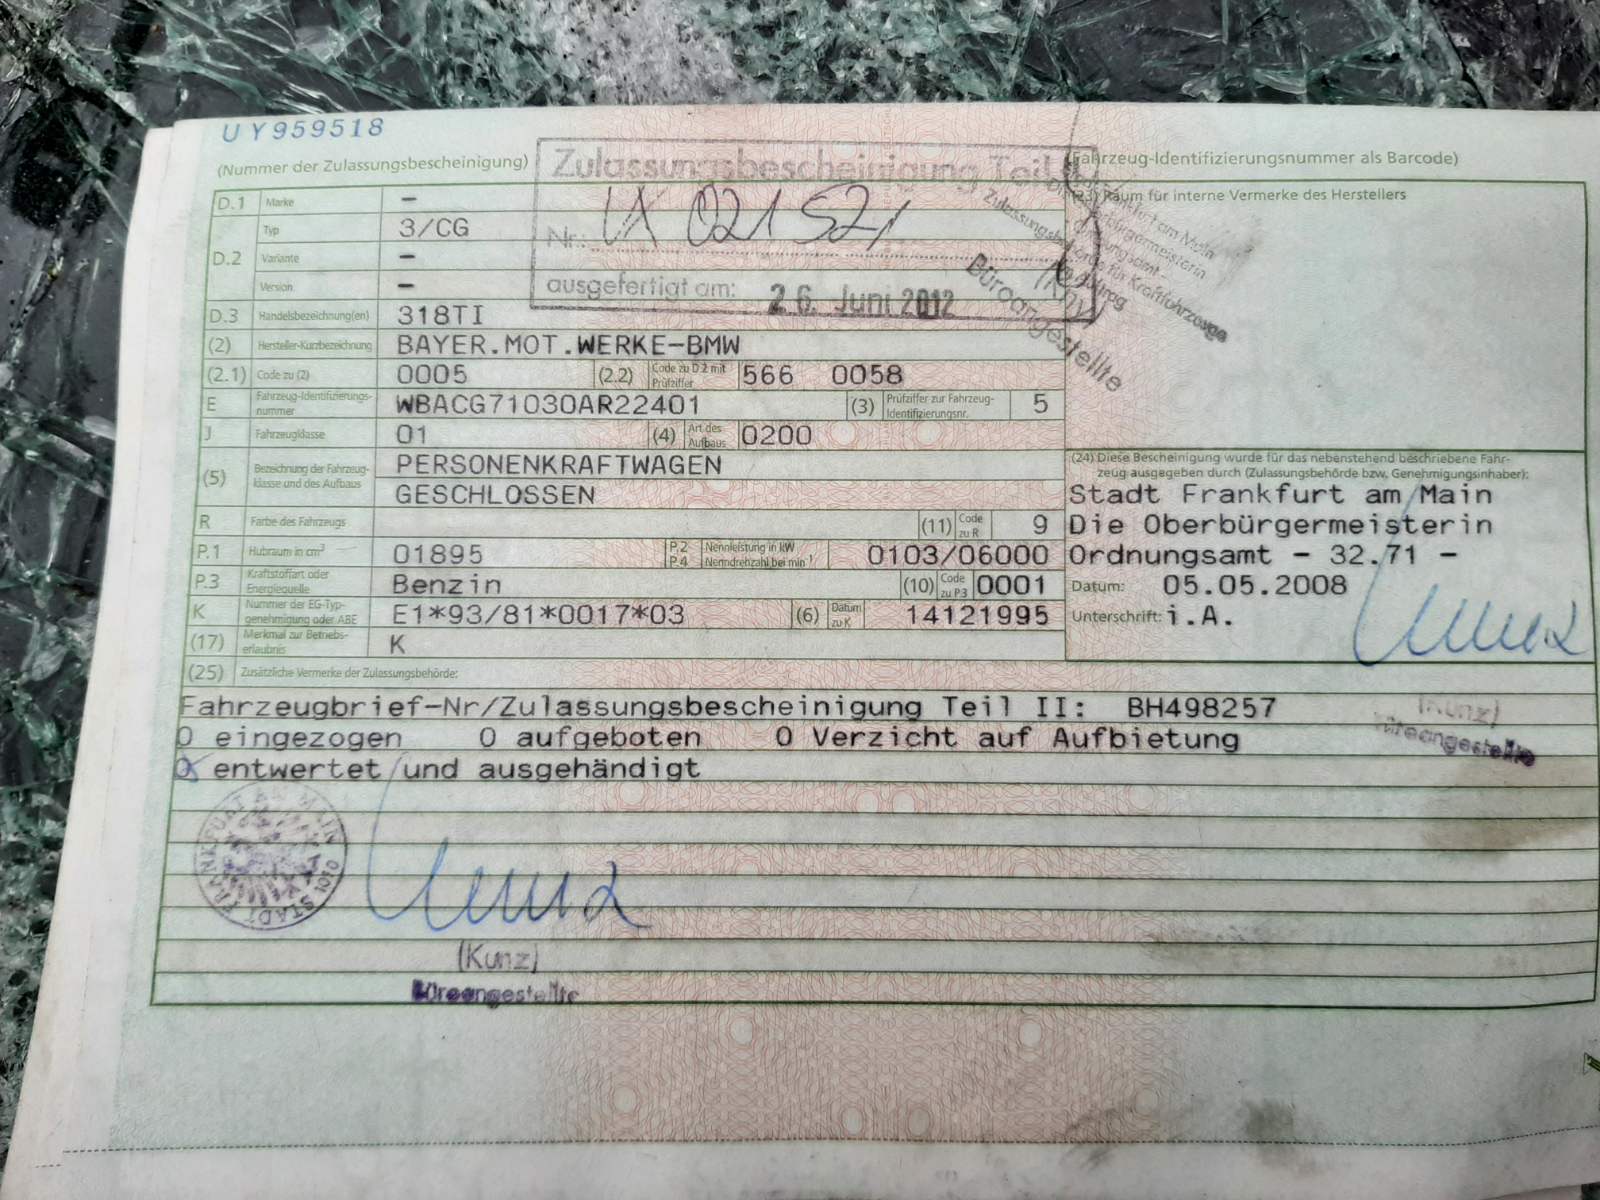 UY959518
(Nummer der Zulassungsbescheinigung)
Zulassungsbescheinigung Teil
Nr.: 
ausgefertigt am: 26. Juni 2012
(Fahrzeug-Identifizierungsnummer als Barcode)
(23) Raum für interne Vermerke des Herstellers
Frankfurt am Main
Zulassungsbehörde für Kraftfahrzeuge
Im Auftrag
(Kunz)
Büroangestellte
D.1 Marke –
D.2 Typ 3/CG
Variante –
Version –
D.3 Handelsbezeichnung(en) 318TI
(2) Hersteller-Kurzbezeichnung BAYER.MOT.WERKE-BMW
(2.1) Code zu (2) 0005 (2.2) Code zu D.2 mit Prüfziffer 566 0058
E Fahrzeug-Identifizierungs-nummer WBACG71030AR22401 (3) Prüfziffer zur Fahrzeug-Identifizierungsnr. 5
J Fahrzeugklasse 01 (4) Art des Aufbaus 0200
(5) Bezeichnung der Fahrzeug-klasse und des Aufbaus PERSONENKRAFTWAGEN
GESCHLOSSEN
R Farbe des Fahrzeugs (11) Code zu R 9
P.1 Hubraum in cm³ 01895 P.2 P.4 Nennleistung in kW Nenndrehzahl bei min⁻¹ 0103/06000
P.3 Kraftstoffart oder Energiequelle Benzin (10) Code zu P.3 0001
K Nummer der EG-Typ-genehmigung oder ABE E1*93/81*0017*03 (6) Datum zu K 14121995
(17) Merkmal zur Betriebs-erlaubnis K
(24) Diese Bescheinigung wurde für das nebenstehend beschriebene Fahr-
zeug ausgegeben durch (Zulassungsbehörde bzw. Genehmigungsinhaber):
Stadt Frankfurt am Main
Die Oberbürgermeisterin
Ordnungsamt - 32.71 -
Datum: 05.05.2008
Unterschrift: i.A.
(25) Zusätzliche Vermerke der Zulassungsbehörde:
Fahrzeugbrief-Nr/Zulassungsbescheinigung Teil II: BH498257
O eingezogen O aufgeboten O Verzicht auf Aufbietung
O entwertet und ausgehändigt
(Kunz)
Büroangestellte
STADT FRANKFURT AM MAIN
1010
(Kunz)
Büroangestellte